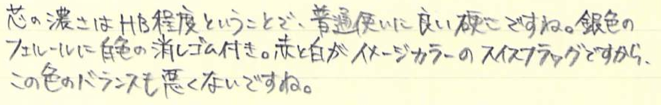 芯の濃さはHB程度ということで、普通使いに良い硬さですね。銀色の
フェルールに白色の消しゴム付き。赤と白がイメージカラーのスイスフラッグですから、
この色のバランスも悪くないですね。